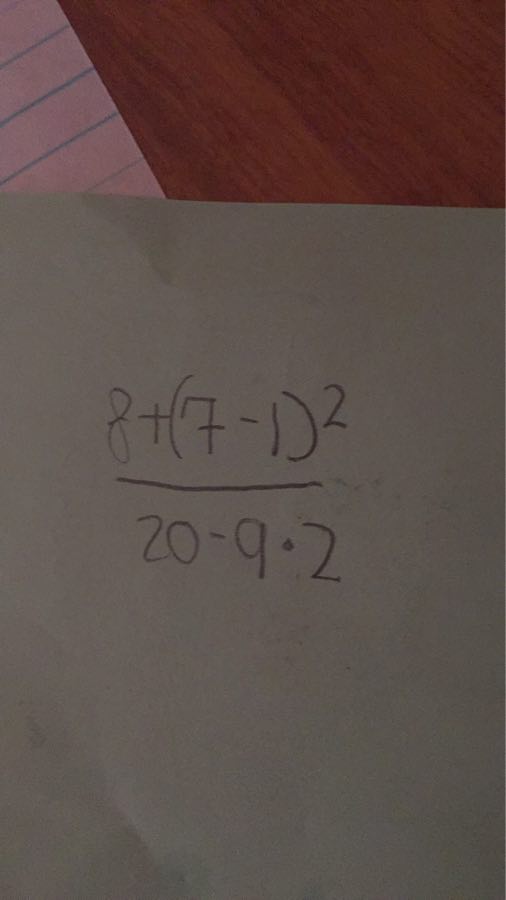 8+(7-1)²
20-9·2